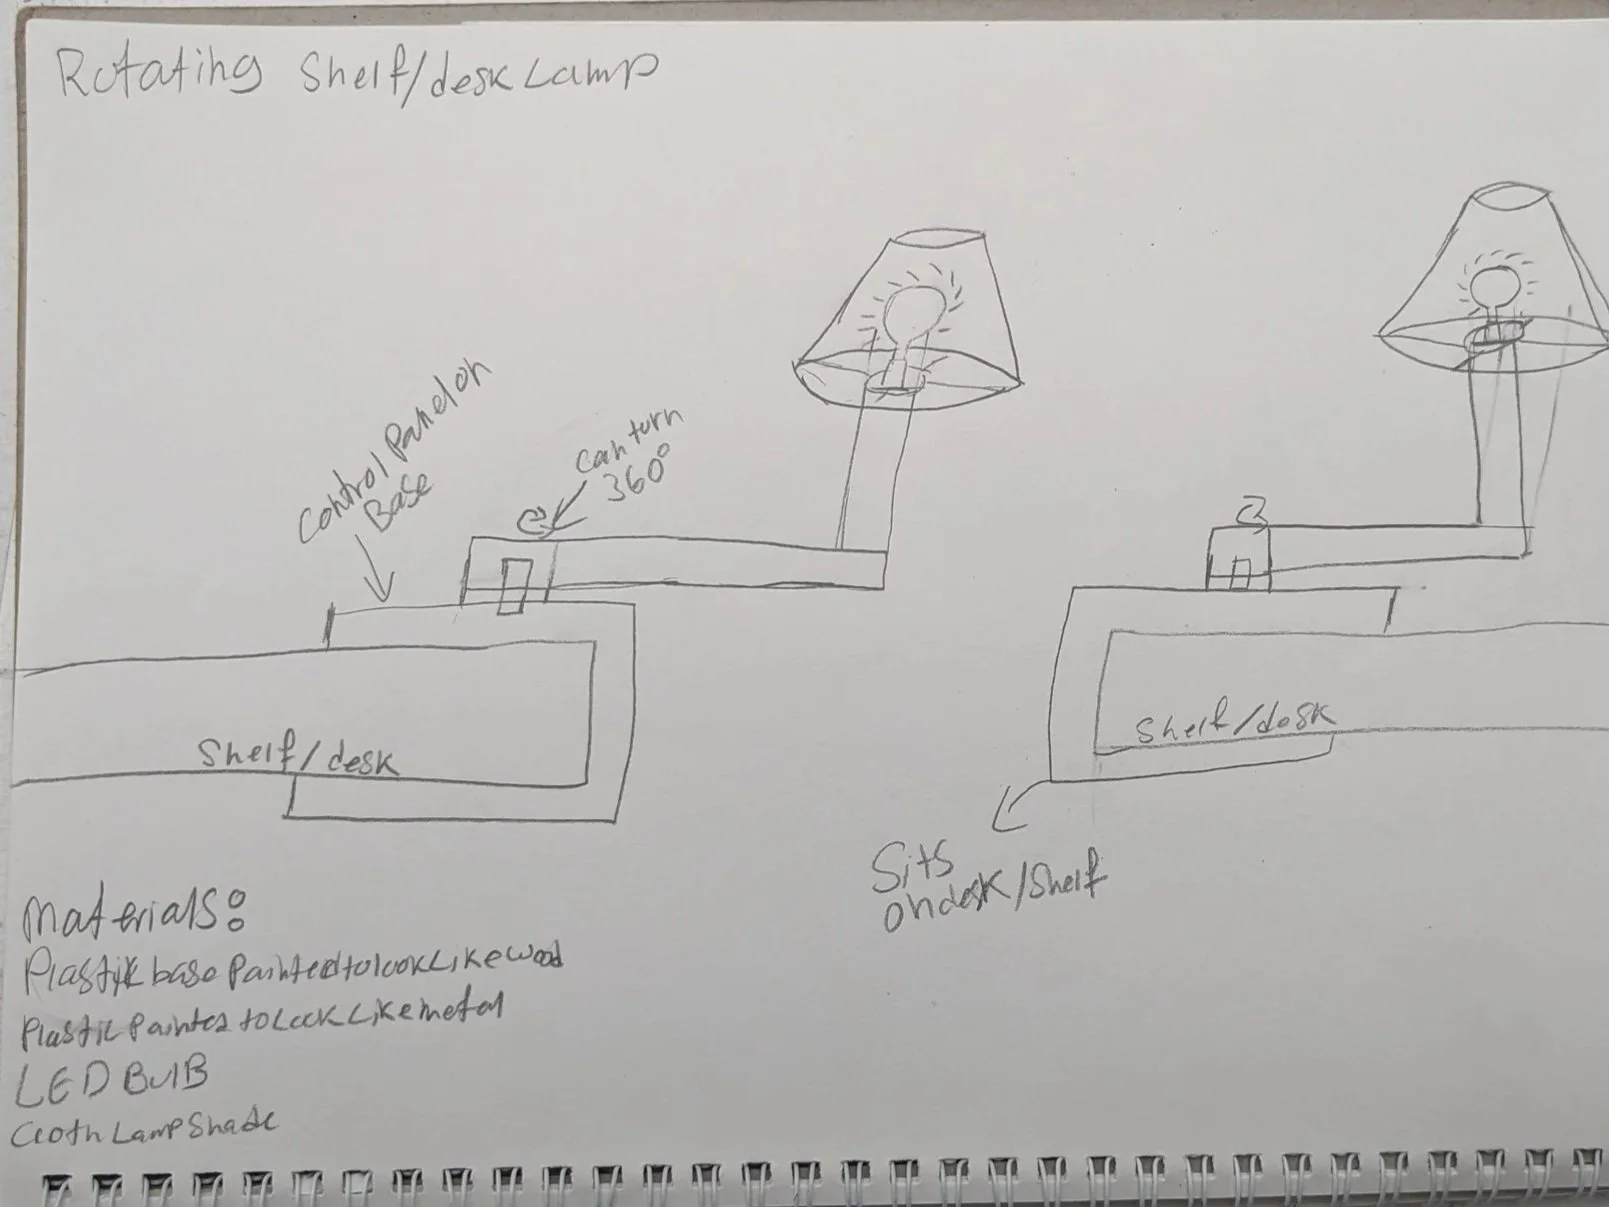 Rotating Shelf/desk Lamp
Control Panel on
Base
can turn
360°
Shelf/desk
Shelf/desk
Sits
on desk/Shelf
Materials:
Plastik base Painted to look Like wood
Plastic Painted to Look Like metal
LED BulB
Cloth Lamp Shade